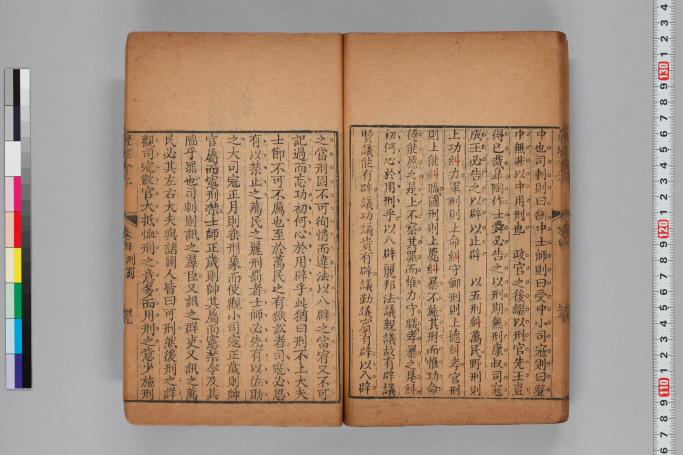 中也司刺則曰斷中士師則曰受中小司寇則曰登
中無非以中用刑也　政官之後繼以刑官先王豈
得已哉皐陶作士舜必告之以刑期無刑康叔司寇
成王必告之以辟以止辟　以五刑糾萬民野刑則
上功糾力軍刑則上命糾守鄉刑則上德糾孝官刑
則上能糾職國刑則上愿糾暴不施其刑而惟功命
德能愿之是上不察其罪而惟力守職孝暴之是糾
初何心於用刑乎以八辟麗邦法議親議故有辟議
賢議能有辟議功議貴有辟議勤議賓有辟以八辟
之當刑固不可徇情而違法以八辟之當宥又不可
記過而忘功初何心於用辟乎此猶曰刑不上大夫
士師不可不屬也至於萬民之有獄訟者司寇必思
有以禁止之萬民之麗刑罰者士師必先有以佐助
之大司寇正月則縣刑象而使觀小司寇正歲則帥
官屬而憲刑禁士師正歲則帥其屬而憲禁令及其
陷乎罪也司刺則訊之羣臣又訊之群吏又訊之萬
民必其左右大夫與諸國人皆曰可刑然後刑之詳
觀司寇數官大抵恤刑之意多而用刑之意少施刑
130
120
110